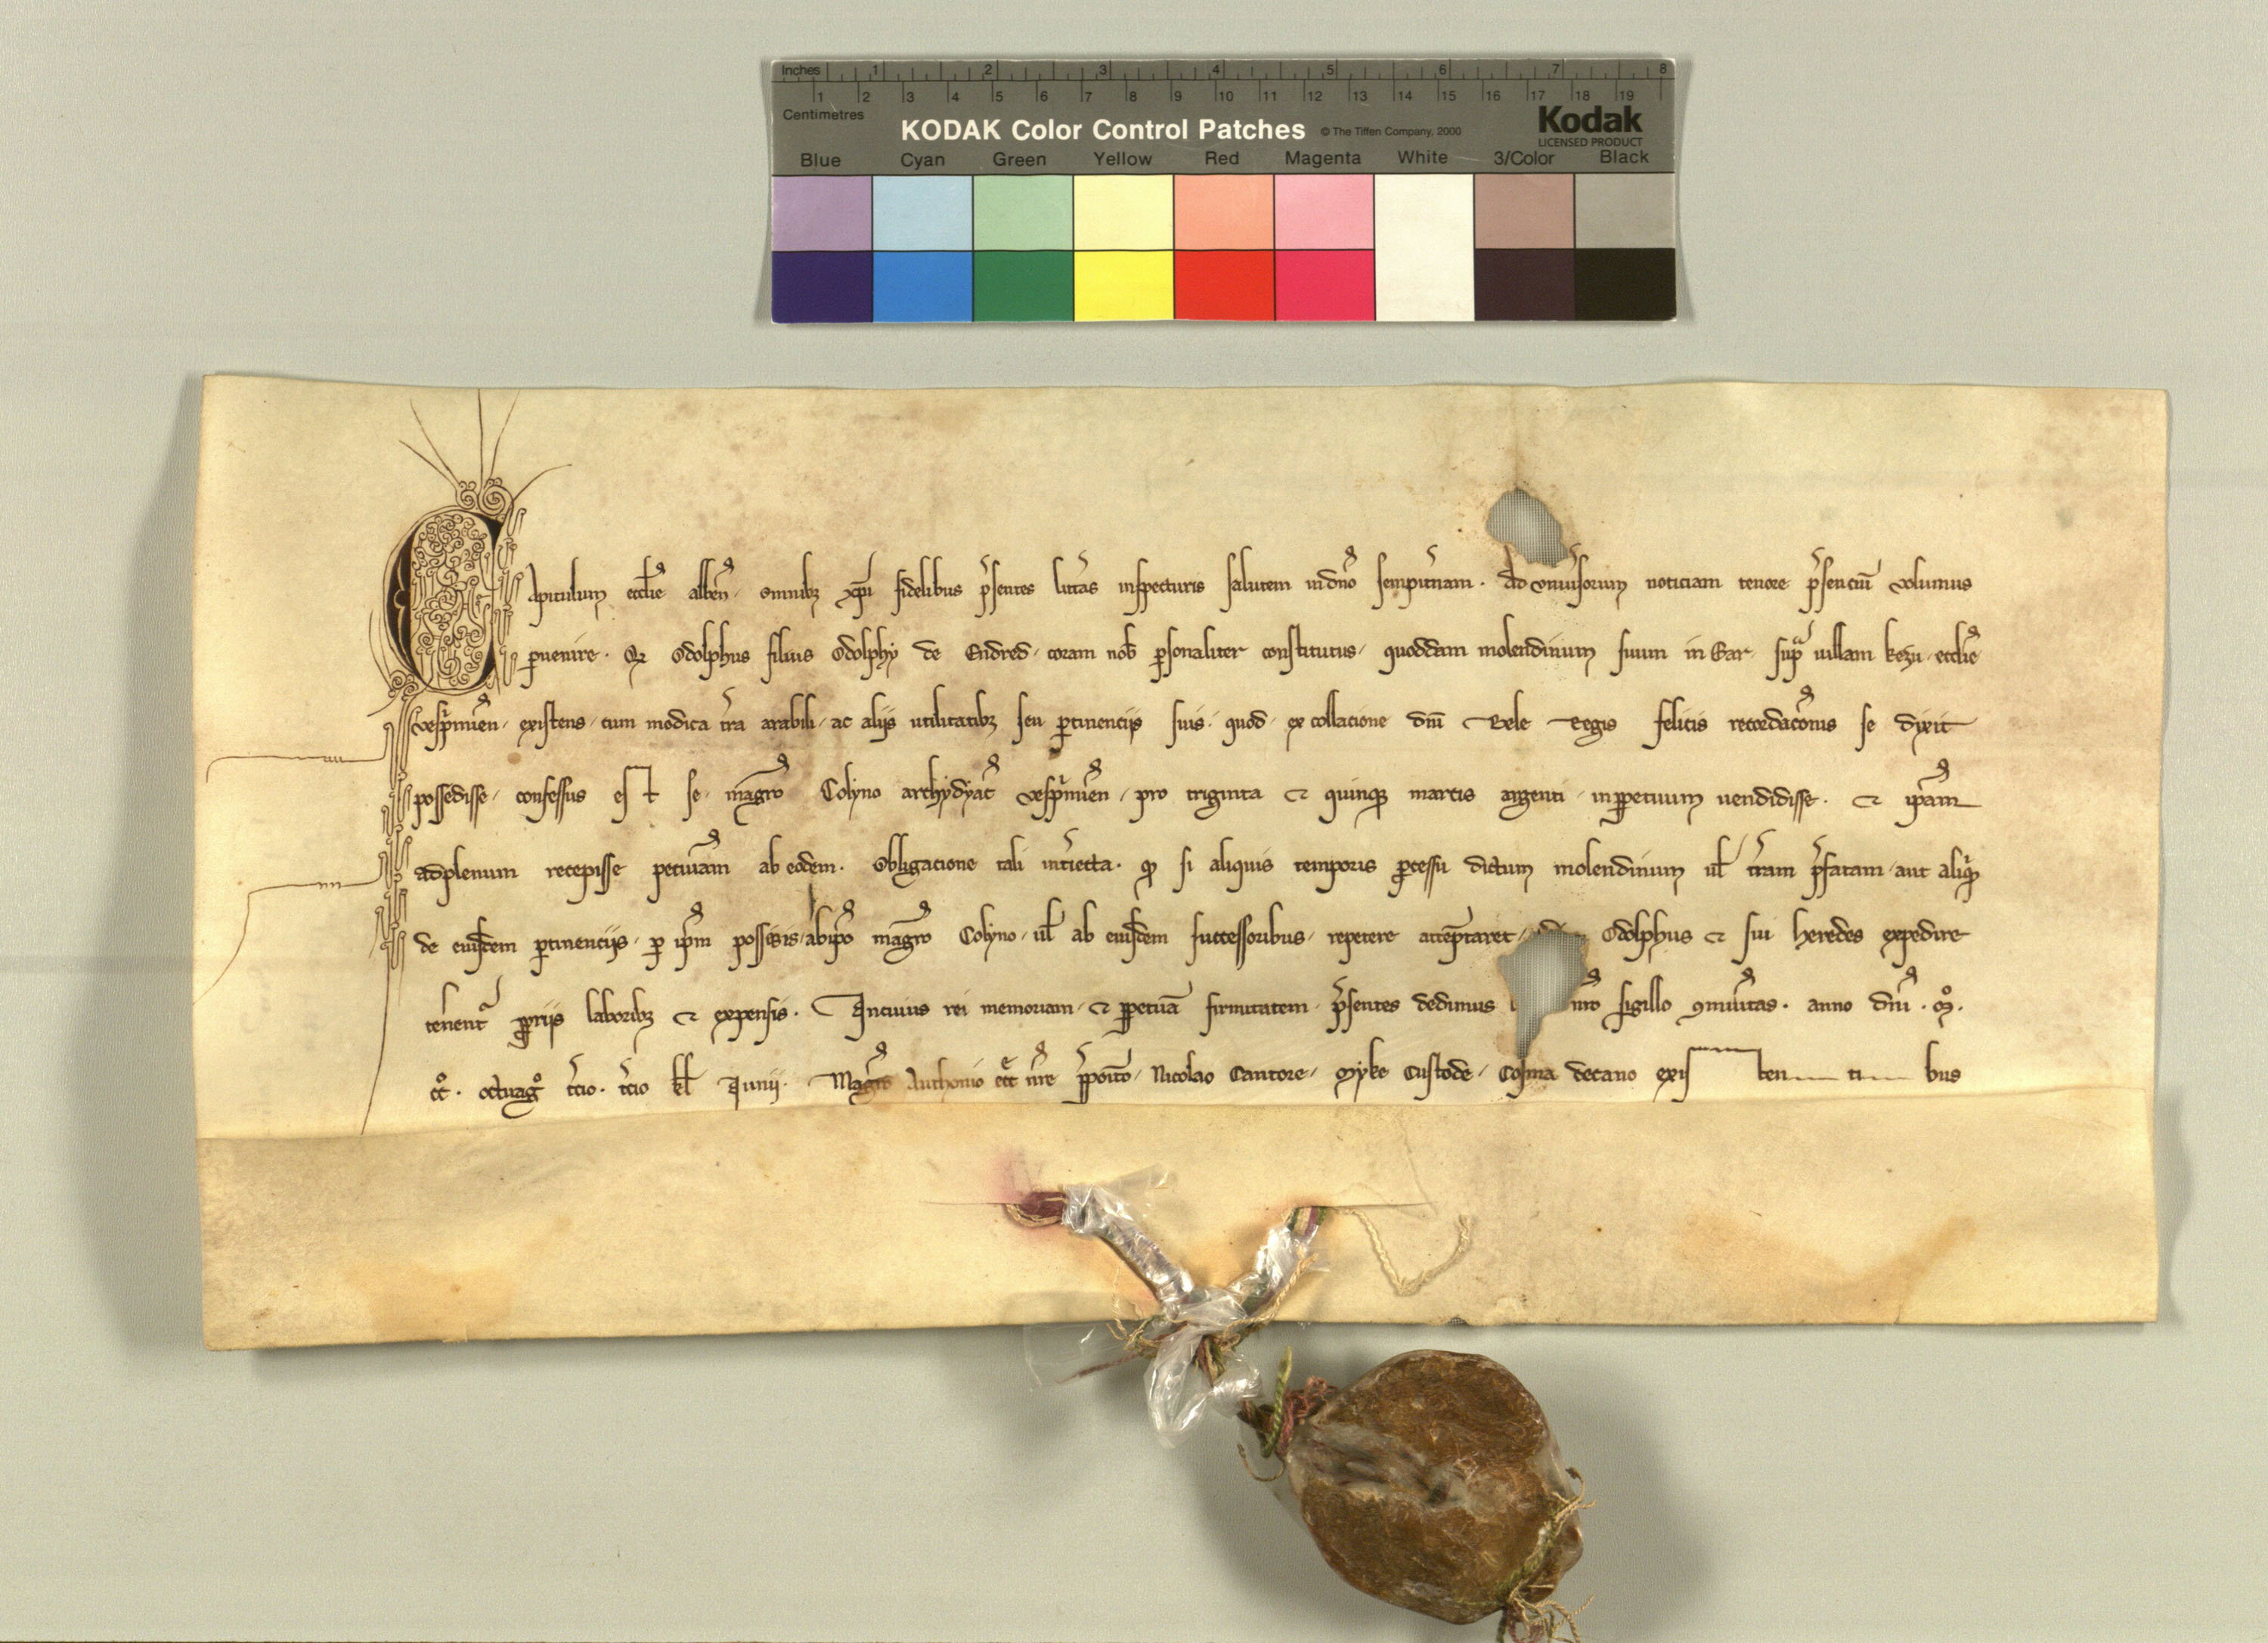 Inches 1 2 3 4 5 6 7 8
1 2 3 4 5 6 7 8 9 10 11 12 13 14 15 16 17 18 19
Centimetres
KODAK Color Control Patches © The Tiffen Company, 2000 Kodak
LICENSED PRODUCT
Blue Cyan Green Yellow Red Magenta White 3/Color Black
Capitulum eccl̄ie alben̄. omnibꝫ xp̄i fidelibus p̄sentes litt̄as inspecturis salutem in dn̄o sempit̄nam. Ad vniu̓soruꝫ noticiam tenore p̄senciū volumus
ꝑuenire. Odolphus filius Odolphy de Endred. coram nob̄ ꝑsonaliter constitutus. quoddam molendinum suum in Gar sup̄ uillam kezu eccl̄ie
vesp̄mien̄. existens. cum modica t̄ra arabili. ac alijs utilitatibꝫ seu ꝑtinencijs suis. quod ex collacione dn̄i Bele Regis felicis recordac̄onis se dixit
possedisse. confessus est se. maḡro Colyno archydyac̄ vesp̄mien̄. pro triginta ⁊ quinqꝫ marcis argenti. inꝑpetuum uendidisse. ⁊ ip̄am
adplenum recepisse pecun̄iam ab eodem. Obligacione tali int̄iecta. ꝙ si aliquis temporis ꝓcessu dictum molendinum ul̄ t̄ram p̄fatam. aut
de eiusdem ꝑtinencijs. ꝑ ip̄m possessis. ab ip̄o maḡro Colyno. ul̄ ab eiusdem successoribus. repetere attemp̄taret. Odolphus ⁊ sui heredes expedire
tenent̄ ꝓprijs laboribꝫ ⁊ expensis. In cuius rei memoriam. ⁊ ꝑpetuā firmitatem. p̄sentes dedimus nr̄o sigillo ꝯmunitas. anno dn̄i. mº.
ccº. octuagº t̄cio. t̄cio kl̄ Junij. Mag̓ris Anthonio eccl̄ nr̄e p̄posito. Nicolao Cantore. Myke Custode. Cosma decano exis ten ti bus